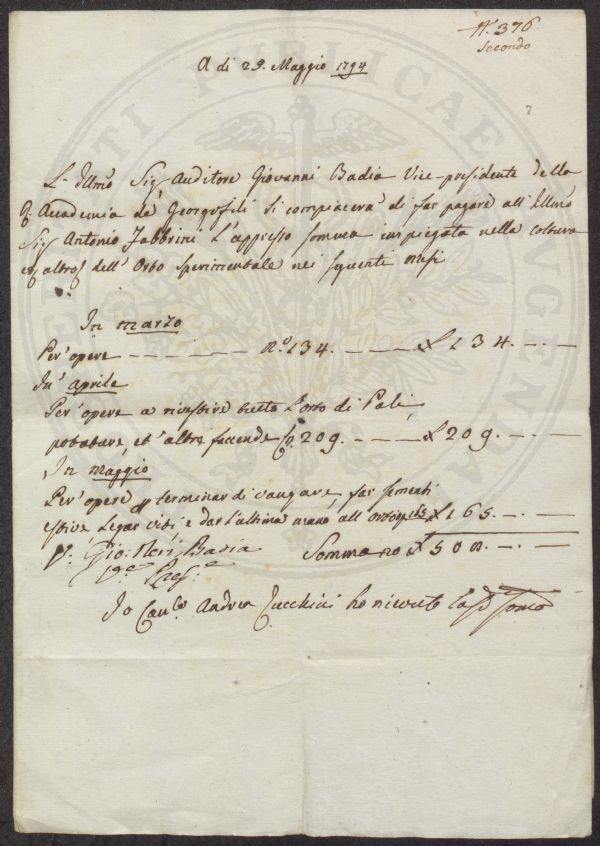 N.° 376
Secondo
7
A di 29. Maggio 1794
L' Illmo Sig Auditore Giovanni Badia Vice-presidente della
Accademia de' Georgofili si compiacerà di far pagare all' Illmo
Sig Antonio Fabbrini l'appresso somma impiegata nella coltura
altro dell' Orto Sperimentale nei seguenti mesi
In marzo
Per opere — N.° 134. — £ 134. — . —
In aprile
Per opere a rivestire tutto l'orto di Pali,
potature et altre faccende 209. — £ 209. — . —
In maggio
Per opere terminar di vangare, far sementi
estive legar viti e dar l'ultima mano all' orto 165 £ 165. — . —
Gio: Neri Badia Somma no £ 508. — . —
Pres.e
Io Andrea Zucchini ho ricevuto la sd. somma